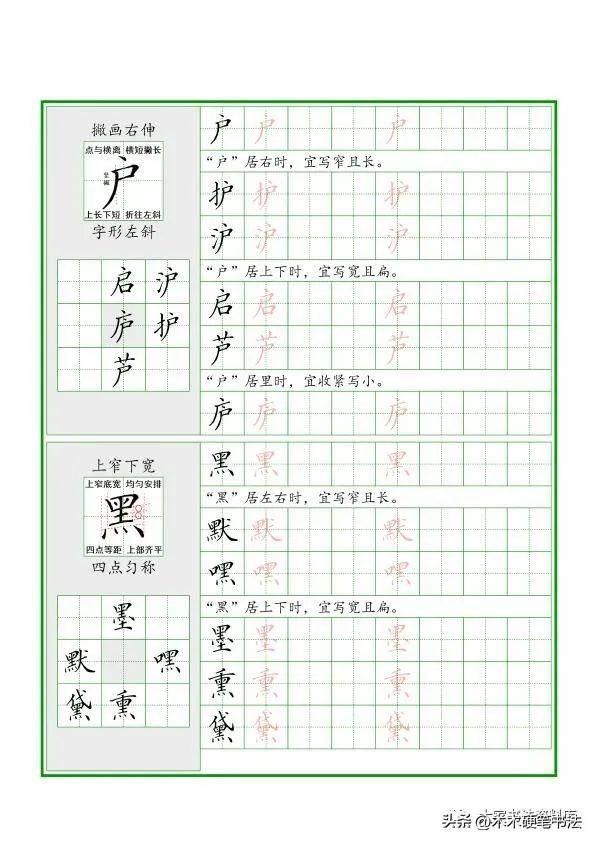 撇画右伸
点与横离 横短撇长
上长下短 折往左斜
字形左斜
户
启 沪
庐 护
芦
户 户 户
“户”居右时，宜写窄且长。
护 护 护
沪 沪 沪
“户”居上下时，宜写宽且扁。
启 启 启
芦 芦 芦
“户”居里时，宜收紧写小。
庐 庐 庐
上窄下宽
上窄底宽 均匀安排
黑
四点等距 上部齐平
四点匀称
墨
默 嘿
黛 熏
黑 黑 黑
“黑”居左右时，宜写窄且长。
默 默 默
嘿 嘿 嘿
“黑”居上下时，宜写宽且扁。
墨 墨 墨
熏 熏 熏
黛 黛 黛
头条 @木木硬笔书法